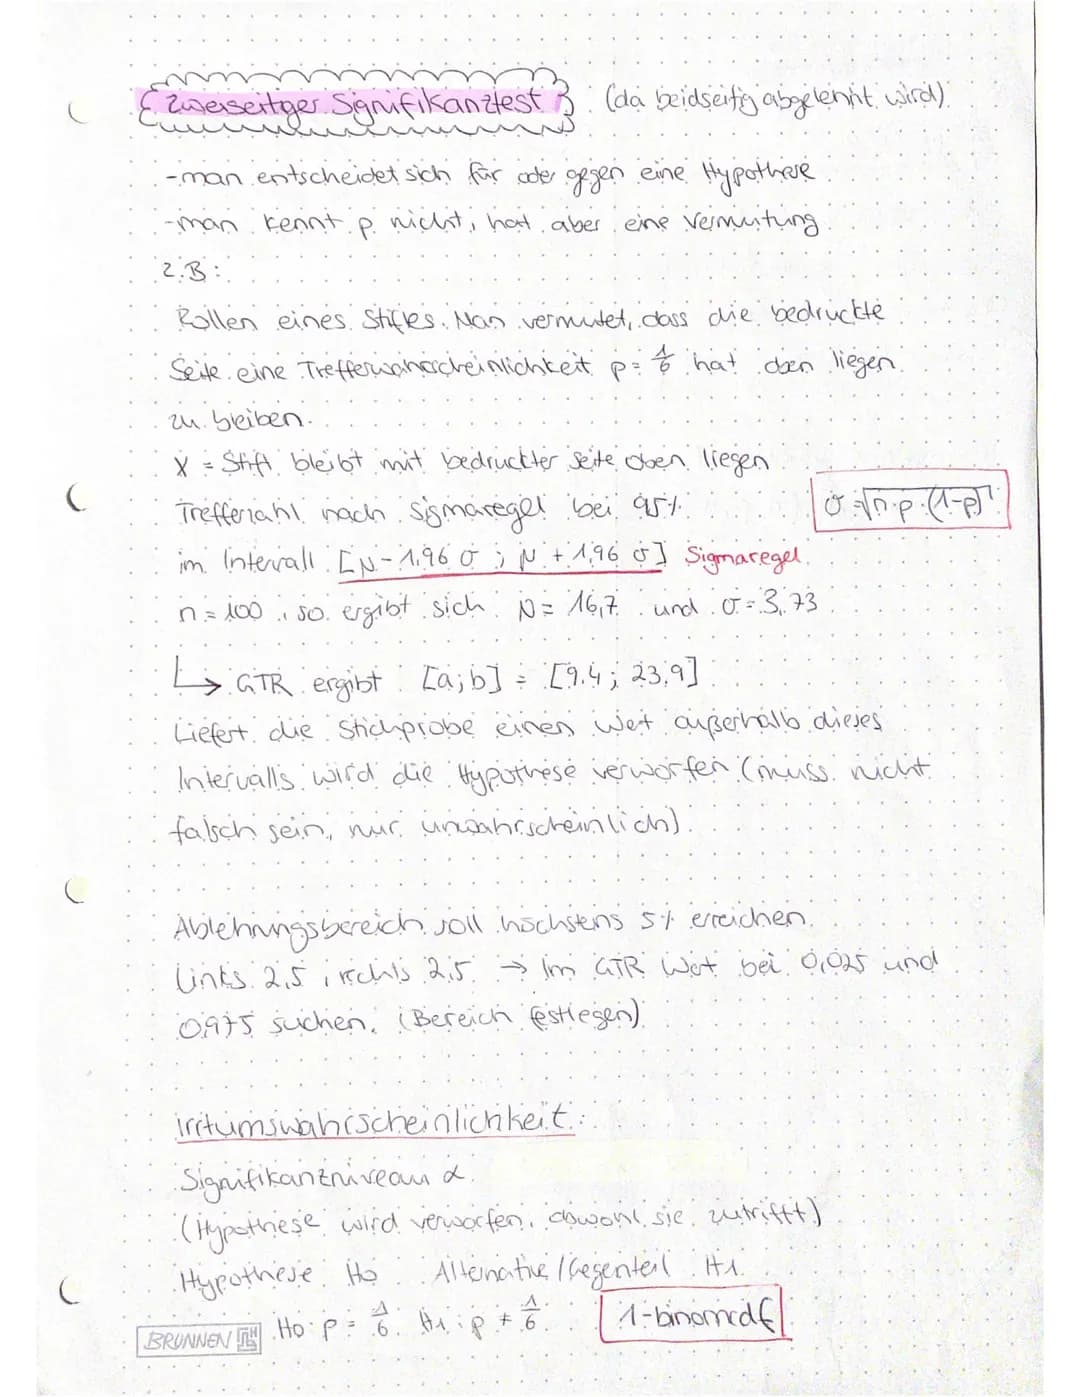 Zweiseitiger Signifikanztest (da beidseitig abgelehnt wird)
- man entscheidet sich für oder gegen eine Hypothese
- man kennt p nicht, hat aber eine Vermutung
z.B:
Rollen eines Stiftes. Man vermutet, dass die bedruckte
Seite eine Trefferwahrscheinlichkeit p = 1/6 hat oben liegen
zu bleiben.
X = Stift bleibt mit bedruckter Seite oben liegen
Trefferzahl nach Sigmaregel bei 95%
σ = √n·p·(1-p)
im Intervall [μ - 1,96 σ ; μ + 1,96 σ] Sigmaregel
n = 100, so ergibt sich μ = 16,7 und σ = 3,73
↳ GTR ergibt [a;b] = [9.4; 23,9]
Liefert die Stichprobe einen Wert außerhalb dieses
Intervalls wird die Hypothese verworfen (muss nicht
falsch sein, nur unwahrscheinlich).
Ablehnungsbereich soll höchstens 5% erreichen.
Links 2,5, rechts 2,5 → Im GTR Wert bei 0,025 und
0,975 suchen. (Bereich festlegen)
Irrtumswahrscheinlichkeit:
Signifikanzniveau α
(Hypothese wird verworfen, obwohl sie zutrifft)
Hypothese H0 Alternative/Gegenteil H1
H0: p = 1/6 H1: p ≠ 1/6 1-binomcdf
BRUNNEN